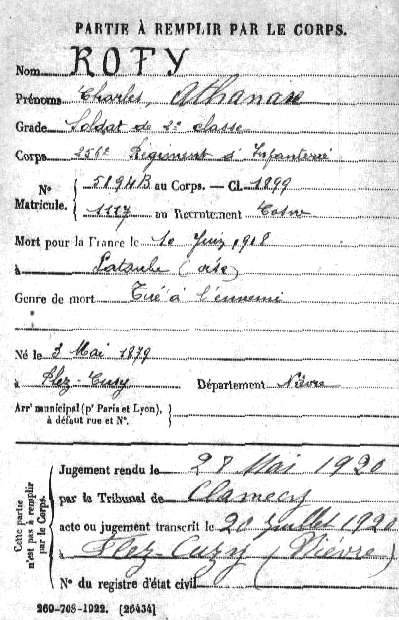 PARTIE À REMPLIR PAR LE CORPS.
Nom ROTY
Prénoms Charles, Athanase
Grade Soldat de 2e classe
Corps 256e Régiment d'Infanterie
No Matricule. 5894B au Corps. — Cl. 1899
1117 au Recrutement Cosne
Mort pour la France le 10 Juin 1918
à (oise)
Genre de mort Tué à l'ennemi
Né le 3 Mai 1879
à Flez-Cuzy Département Nièvre
Arrt municipal (pr Paris et Lyon), à défaut rue et No.
Cette partie n'est pas à remplir par le Corps.
Jugement rendu le 28 Mai 1920
par le Tribunal de Clamecy
acte ou jugement transcrit le 20 Juillet 1920
à Flez-Cuzy (Nièvre)
No du registre d'état civil
269-708-1922. [26434]